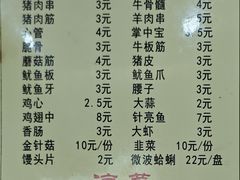 猪肉串 3元 牛骨髓 4元
猪肉筋 3元 羊肉串 5元
心管 4元 掌中宝 3.5元
脆骨 3元 牛板筋 3元
蘑菇筋 4元 猪皮 3元
鱿鱼板 3元 鱿鱼爪 3元
鱿鱼牙 3元 腰子 3元
鸡心 2.5元 大蒜 2元
鸡翅中 8元 针亮鱼 7元
香肠 3元 大虾 3元
金针菇 10元/份 韭菜 10元/份
馒头片 2元 微波蛤蜊 22元/盘
凉菜